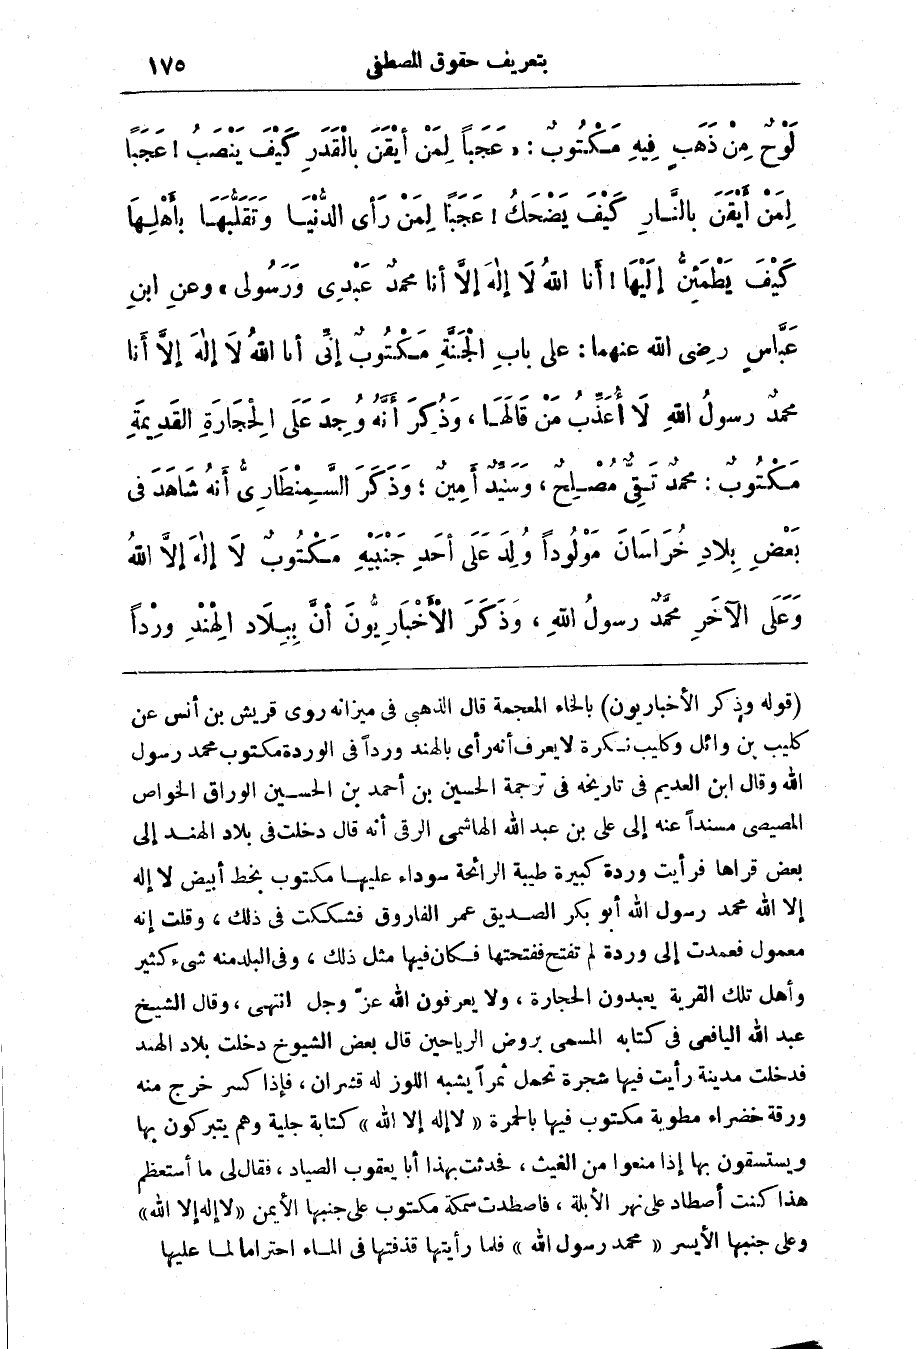 بتعريف حقوق المصطفى ١٧٥
لَوْحٌ مِنْ ذَهَبٍ فِيهِ مَكْتُوبٌ : « عَجَباً لِمَنْ أَيْقَنَ بِالْقَدَرِ كَيْفَ يَنْصَبُ ! عَجَبًا
لِمَنْ أَيْقَنَ بالنَّارِ كَيْفَ يَضْحَكُ ! عَجَبًا لِمَنْ رَأى الدُّنْيَا وَتَقَلُّبَهَا بِأَهْلِهَا
كَيْفَ يَطْمَئِنُّ إِلَيْهَا ! أَنا اللهُ لَا إِلٰهَ إِلَّا أنا محمدٌ عَبْدِى وَرَسُولى » وعنِ ابنِ
عَبَّاسٍ رضى الله عنهما : على بابِ الْجَنَّةِ مَكْتُوبٌ إنِّى أنا اللهُ لَا إِلٰهَ إلاَّ أَنا
محمدٌ رسولُ اللهِ لَا أُعَذِّبُ مَنْ قَالَهَا ، وَذُكِرَ أَنَّهُ وُجِدَ عَلَى الْحِجَارَةِ القَدِيمَةِ
مَكْتُوبٌ : محمدٌ تَقِىٌّ مُصْلِحٌ ، وَسَيِّدٌ أَمِينٌ ؛ وَذَكَرَ السَّمِنْطَارِىُّ أَنهُ شَاهَدَ فى
بَعْضِ بِلادِ خُرَاسَانَ مَوْلُوداً وُلِدَ عَلَى أَحَدِ جَنْبَيْهِ مَكْتُوبٌ لَا إِلٰهَ إلاَّ اللهُ
وَعَلَى الآخَرِ محَمَّدٌ رسولُ اللهِ ، وَذَكَرَ الْأَخْبَارِيُّونَ أَنَّ بِبِلَادِ الْهِنْدِ ورْداً
(قوله وذكر الأخباريون) بالخاء المعجمة قال الذهبى فى ميزانه روى قريش بن أنس عن
كليب بن وائل وكليب نكرة لا يعرف أنه رأى بالهند ورداً فى الوردة مكتوب محمد رسول
الله وقال ابن العديم فى تاريخه فى ترجمة الحسين بن أحمد بن الحسين الوراق الخواص
المصيصى مسنداً عنه إلى على بن عبد الله الهاشمى الرقى أنه قال دخلت فى بلاد الهند إلى
بعض قراها فرأيت وردة كبيرة طيبة الرائحة سوداء عليها مكتوب بخط أبيض لا إله
إلا الله محمد رسول الله أبو بكر الصديق عمر الفاروق فشككت فى ذلك ، وقلت إنه
معمول فعمدت إلى وردة لم تفتح ففتحتها فكان فيها مثل ذلك ، وفى البلد منه شىء كثير
وأهل تلك القرية يعبدون الحجارة ، ولا يعرفون الله عزّ وجل انتهى ، وقال الشيخ
عبد الله اليافعى فى كتابه المسمى بروض الرياحين قال بعض الشيوخ دخلت بلاد الهند
فدخلت مدينة رأيت فيها شجرة تحمل ثمراً يشبه اللوز له قشران ، فإذا كسر خرج منه
ورقة خضراء مطوية مكتوب فيها بالحمرة « لا إله إلا الله » كتابة جلية وهم يتبركون بها
ويستسقون بها إذا منعوا من الغيث ، فحدثت بهذا أبا يعقوب الصياد ، فقال لى ما أستعظم
هذا كنت أصطاد على نهر الأبلة ، فاصطدت سمكة مكتوب على جنبها الأيمن «لا إله إلا الله»
وعلى جنبها الأيسر « محمد رسول الله » فلما رأيتها قذفتها فى الماء احتراما لما عليها